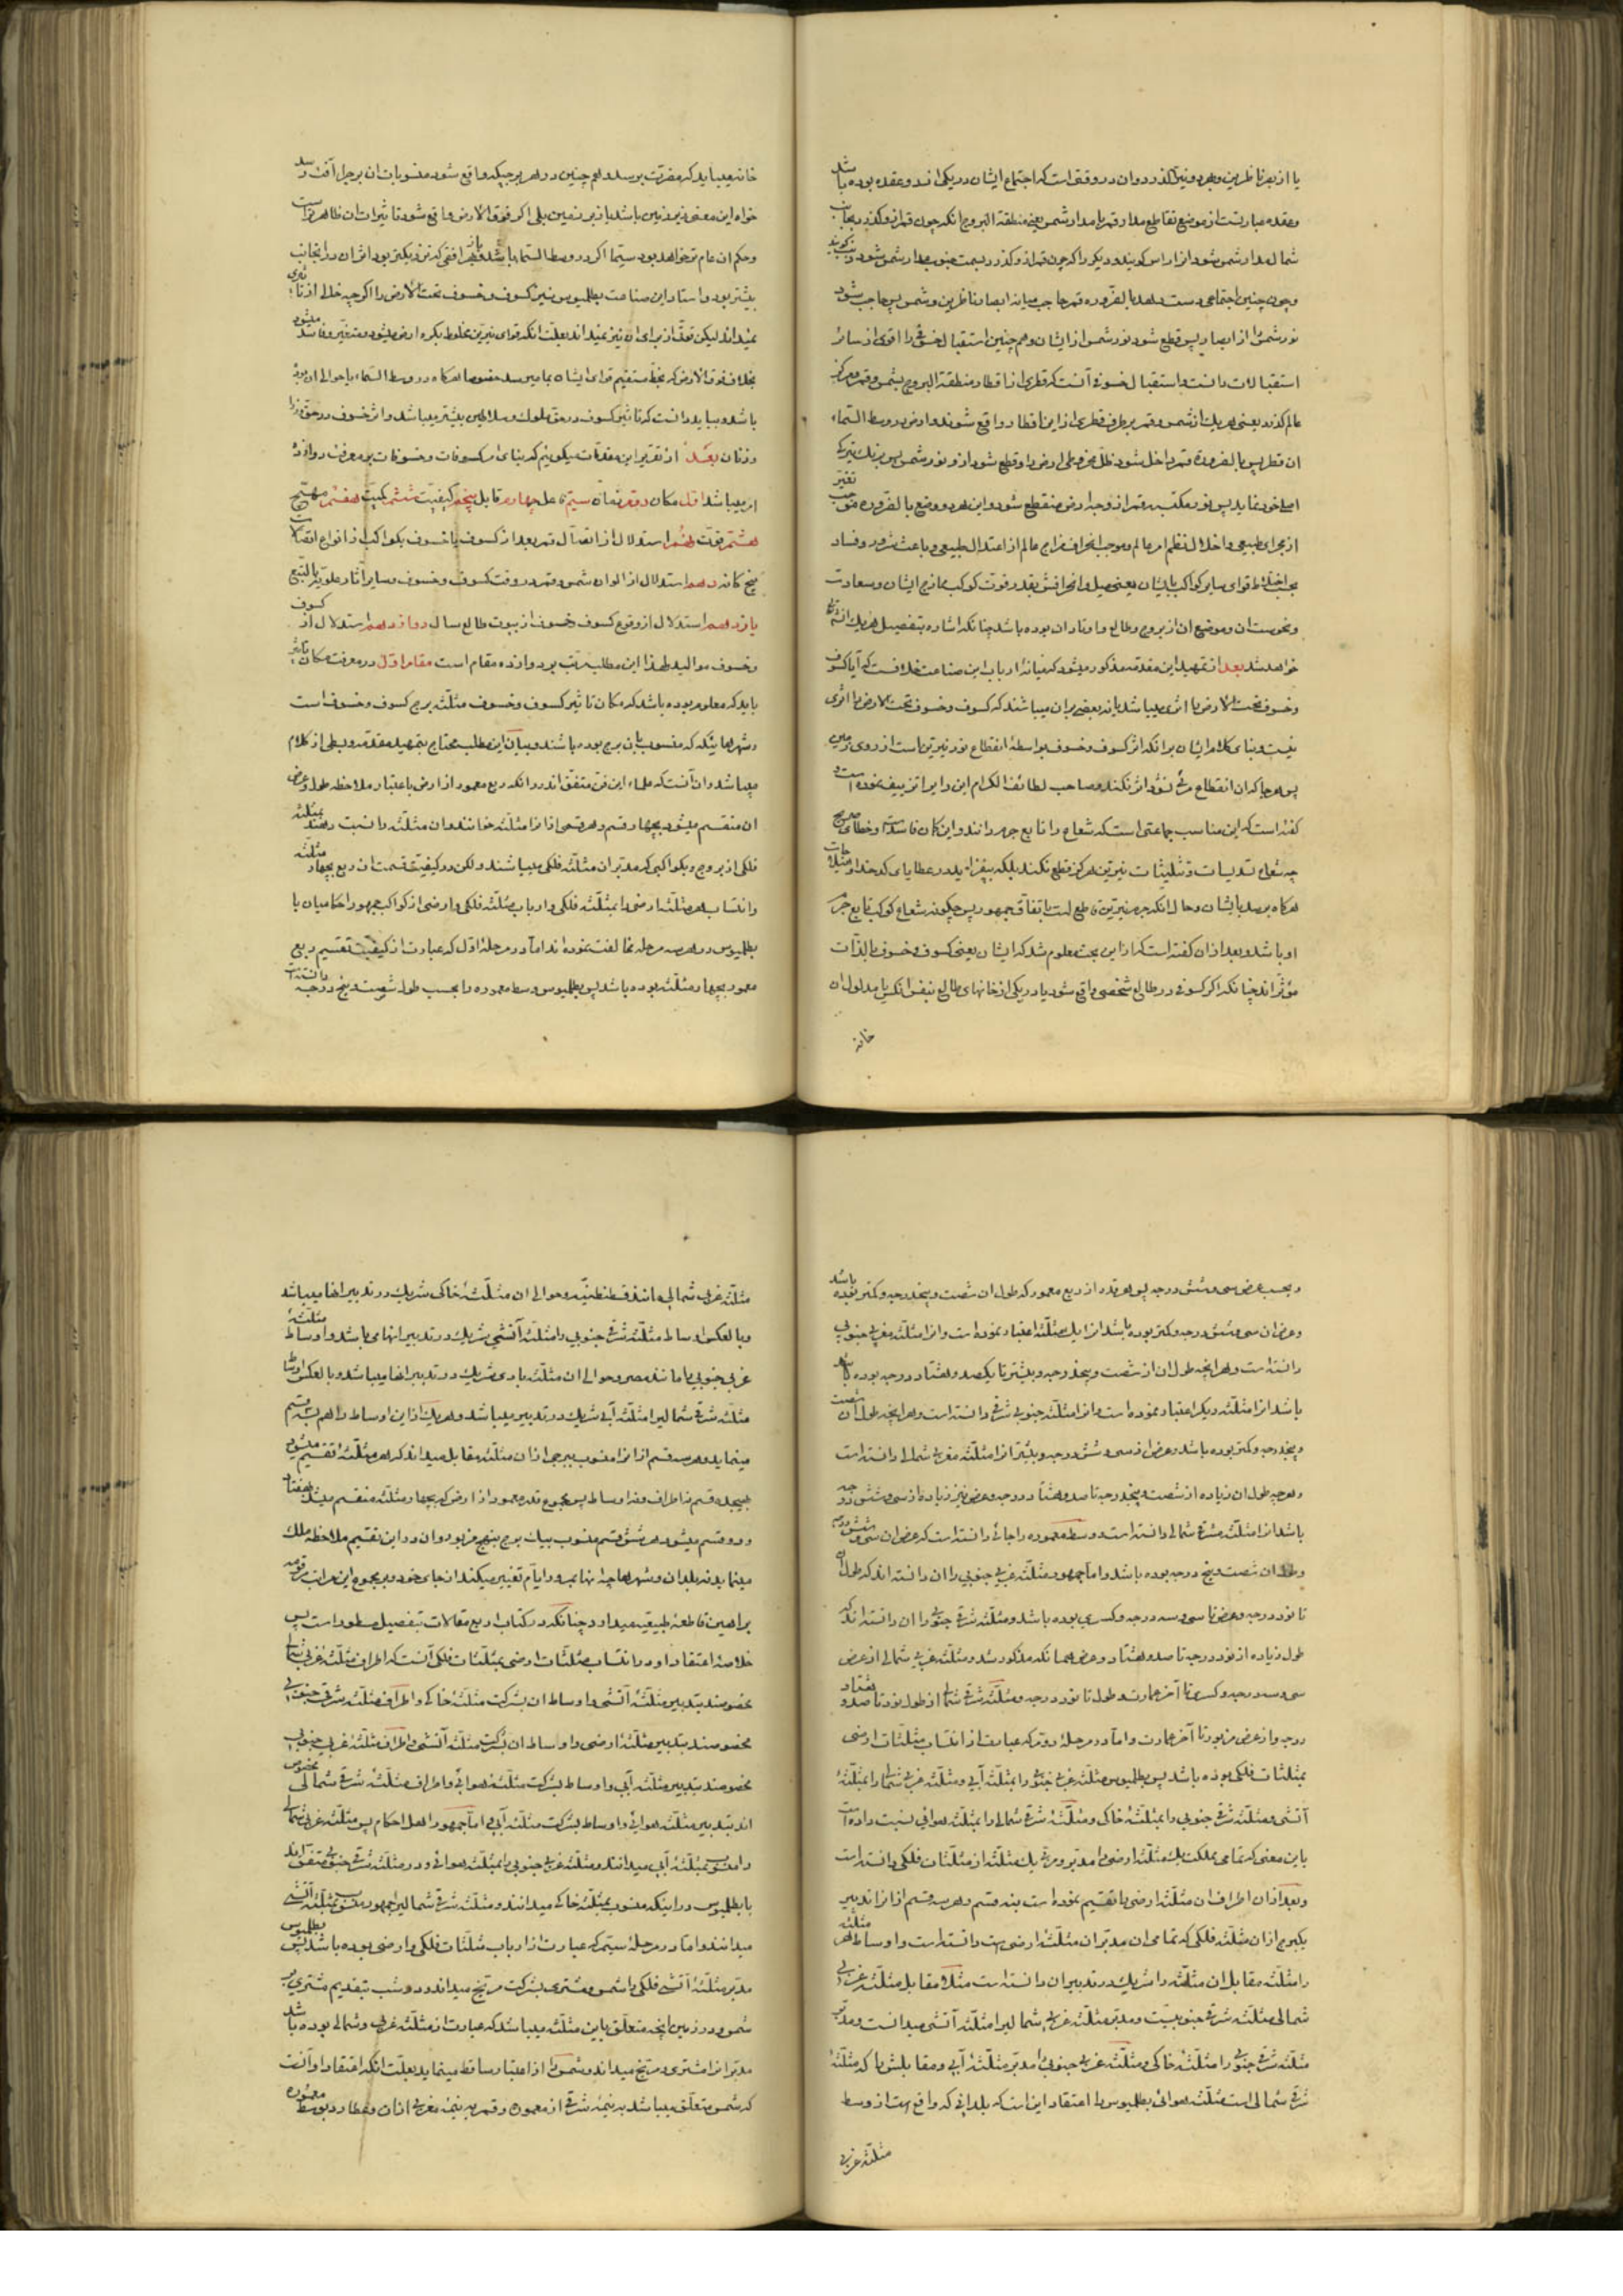 یا از بصر ناظرین و بعد و نیز کذرد و ان در وقتی است که اجتماع ایشان در یکی از دو عقده بوده باشد
و عقده عبارتست از موضع تقاطع مدار قمر با مدار شمس یعنی منطقة البروج انکه چون قمر از و کذرد بجانب
شمال مدار شمس شود انرا راس کویند و دیکر را که چون قمر از و کذرد بسمت جنوب مدار شمس شود ذنب کویند
و چون چنین اجتماعی دست دهد بالضروره قمر حاجب میانه ابصار ناظرین و شمس پس حاجب شود
نور شمس را از ابصار پس قطع شود نور شمس از ایشان و هم چنین استقبال خسوفی را اقوی از سائر
استقبالات دانست و استقبال خسوفی آنست که قطری از اقطار منطقة البروج بشمس و قمر و مرکز
عالم کذرد یعنی هر یک از شمس و قمر بر طرف قطری از این اقطار واقع شوند و ارض در وسط السماء
ان قطر پس بالضروره قمر داخل شود ظل مخروطی ارض را و قطع شود از و نور شمس پس برنک تیرکی
اصلی خود نماید پس نور مکتسب قمر از وجه ارض منقطع شود و این هر دو وضع بالضروره موجب تغیر
از مجرای طبیعی و اخلال نظم امر عالم و موجب انحراف مزاج عالم از اعتدال طبیعی و باعث شرور و فساد
بحسب اختلاط قوای سایر کواکب بایشان یعنی میل و انحرافش بقدر قوت کوکب ممازج ایشان و سعادت
و نحوست ان و موضع ان از بروج و طالع و اوتاد ان بوده باشد چنانکه اشاره بتفصیل هر یک انشاءالله
خواهد شد بعد از تمهید این مقدمه مذکور میشود که میانه ارباب این صناعت خلافست که آیا کسوف
و خسوف تحت الارض را اثری میباشد یا نه بعضی بر ان میباشند که کسوف و خسوف تحت الارض را اثری
نیست و بنای کلام ایشان بر انکه اثر کسوف و خسوف بواسطهٔ انقطاع نور نیرین است از روی زمین
پس هر جا که ان انقطاع مرئی نشود اثر نکند و صاحب لطائف الکرام این رای را تزییف نموده است و
کفته است که این مناسب جماعتی است که شعاع را تابع جرم دانند و این کمان فاسد است و خطای صریح
چه شعاع تسدیسات و تثلیثات نیرین هرکز قطع نکند بلکه بیفزاید در عطایای کدخدا و هیلاجات
هرکاه برسد بایشان و حال انکه جرم نیرین قاطع است باتفاق جمهور پس چکونه شعاع کوکب تابع جرم
او باشد و بعد از ان کفته است که از این بحث معلوم شد که ایشان یعنی کسوف و خسوف بالذات
مؤثر اند چنانکه اکر کسوفی در طالع شخصی واقع شود یا در یکی از خانهای طالع بنفس انکس یا مدلول ان
خانه
خانه میباید که مضرت برسد و هم چنین در هر برجیکه واقع شود منسوبات ان برج را آفت رسد
خواه این معنی زبر زمین باشد یا زیر زمین بلی اکر فوق الارض واقع شود تاثیرات ان ظاهر تر است
و حکم ان عام تر خواهد بود سیما اکر در وسط السماء باشد و بهر افقی که نزدیکتر بود اثر ان در انجانب
بیشتر بود و استاد این صناعت بطلمیوس نیز کسوف و خسوف تحت الارض را اکرچه خالی از تاثیری
نمیداند لیکن قوتی از برای ان نیز نمیداند بعلت انکه قوای نیرین مخلوط بکره ارض میشود و متغیر و فاسد میشود
بخلاف فوق الارض که بخط مستقیم قوای ایشان بما میرسد خصوصا هرکاه در وسط السماء یا حوالی ان بوده
باشد و بباید دانست که تاثیر کسوف در حق ملوک و سلاطین بیشتر میباشد و اثر خسوف در حق وزرا
و زنان بعد از تقریر این مقدمات میکوییم که بنای امر کسوفات و خسوفات بر معرفت دوازده
امر میباشد اول مکان دوم زمان سیّم محل چهارم قابل پنجم کیفیت ششم کمیت هفتم مهیّج
هشتم قوت نهم استدلال از اتصال قمر بعد از کسوف یا خسوف بکواکب از انواع اتصالات
پنج کانه دهم استدلال از الوان شمس و قمر در وقت کسوف و خسوف و سایر آثار علویّه بالتبع
یازدهم استدلال از وقوع کسوف و خسوف از بیوت طالع سال دوازدهم استدلال از کسوف
و خسوف موالید لهذا این مطلب مرتب بر دوازده مقام است مقام اول در معرفت مکان تاثیر
باید که معلوم بوده باشد که مکان تاثیر کسوف و خسوف مثلثه برج کسوف و خسوف است
و شهرهاییکه که منسوب بان برج بوده باشند و بیان این مطلب محتاج بتمهید مقدمه و بسطی از کلام
میباشد و ان آنست که علماء این فن متفق اند در انکه ربع معمور از ارض باعتبار ملاحظه طول و عرض
ان منقسم میشود بچهار قسم و هر قسمی از انرا مثلثه خوانند و ان مثلثه را نسبت دهند بمثلثه
فلکی از بروج و بکواکبی که مدبّر ان مثلثه فلکی میباشند ولکن در کیفیت قسمت ان ربع بچهار مثلثه
و انتساب هر مثلثه ارضی را بمثلثه فلکی و ارباب مثلثه فلکی و ارضی از کواکب جمهور احکامیان با
بطلمیوس در هر سه مرحله مخالفت نموده اند اما در مرحلهٔ اوّل که عبارت از کیفیت تقسیم ربع
معمور بچهار مثلثه بوده باشد پس بطلمیوس وسط معموره را بحسب طول شصت و پنج درجه دانسته است
و بحسب عرض سی و شش درجه پس هر قدر از ربع معمور که طول ان شصت و پنجدرجه و کمتر بوده باشد
و عرض ان سی و شش درجه و کمتر بوده باشد انرا یک مثلثه اعتبار نموده است و انرا مثلثه غربی جنوبی
دانسته است و هر انچه طول ان از شصت و پنجدرجه و بیشتر تا یکصد و هشتاد درجه بوده باشد
باشد انرا مثلثه دیکر اعتبار نموده است و انرا مثلثه جنوبی شرقی دانسته است و هر انچه طول ان شصت
و پنجدرجه و کمتر بوده باشد و عرض از سی و شش درجه و بیشتر انرا مثلثه مغربی شمالی دانسته است
و هر چه طول ان زیاده از شصت و پنجدرجه تا صد و هشتاد درجه و عرض نیز زیاده از سی و شش درجه
باشد انرا مثلثه شرقی شمالی دانسته است و وسط معموره را جائی دانسته است که عرض ان سی و شش درجه
و طول ان شصت و پنج درجه بوده باشد و اما جمهور مثلثه غربی جنوبی را ان دانسته اند که طول ان
تا نود درجه و عرض تا سی و سه درجه و کسری بوده باشد و مثلثه شرقی جنوبی را ان دانسته اند که
طول زیاده از نود درجه تا صد و هشتاد و عرض همانکه مذکور شد و مثلثه غربی شمالی از عرض
سی و سه درجه و کسری تا آخر عمارت و طول تا نود درجه و مثلثه شرقی شمالی از طول نود تا صد و هشتاد
درجه و از عرض مزبور تا آخر عمارت و اما در مرحلهٔ دوّم که عبارت از انتساب مثلثات ارضی
بمثلثات فلکی بوده باشد پس بطلمیوس مثلثه غربی جنوبی را بمثلثه آبی و مثلثه غربی شمالی را بمثلثهٔ
آتشی و مثلثه شرقی جنوبی را بمثلثهٔ خاکی و مثلثهٔ شرقی شمالی را بمثلثه هوائی نسبت داده است
باین معنی که تمامی مملکت یک مثلثه ارضی را مدبّر و مربّی یک مثلثه از مثلثات فلکی دانسته است
و بعد از ان اطراف ان مثلثه ارضی را تقسیم نموده است بسه قسم و هر سه قسم از انرا تدبیر
یکبرج از ان مثلثه فلکی که تمامی ان مدبّر ان مثلثهٔ ارضی است دانسته است و اوساط هر مثلثه
را مثلثه مقابل ان مثلثه را شریک در تدبیر ان دانسته است مثلا مقابل مثلثه غربی
شمالی مثلثه شرقی جنوبیست و مدبّر مثلثه غربی شمالی را مثلثه آتشی میدانست و مدبّر
مثلثه شرقی جنوبی را مثلثهٔ خاکی و مثلثه غربی جنوبی را مدبّر مثلثهٔ آبی و مقابلش را که مثلثهٔ
شرقی شمالی است مثلثه هوائی بطلمیوس را اعتقاد این است که بلدانی که واقع است از وسط
مثلثه غربی
مثلثه غربی شمالی مانند قسطنطنیه و حوالی ان مثلثهٔ خاکی شریک در تدبیر انها میباشد
و بالعکس اوساط مثلثه شرقی جنوبی را مثلثهٔ آتشی شریک در تدبیر انها می باشد و اوساط مثلثهٔ
غربی جنوبی را مانند مصر و حوالی ان مثلثه بادی شریک در تدبیر انها میباشد و بالعکس اوساط
مثلثه شرقی شمالی را مثلثه آبی شریک در تدبیر میباشد و هر یک از این اوساط را هم بسه قسم
مینماید و هر سه قسم از انرا منسوب ببرجی از ان مثلثه مقابل میداند که هر مثلثهٔ تقسیم میشود
بهیجده قسم ز اطراف و ز اوساط پس مجموع قدر معمور از ارض که بچهار مثلثه منقسم میشد بهفتاد
و دو قسم میشود هر شش قسم منسوب بیک برج بنهج مزبور و ان در این تقسیم ملاحظه ملک
مینماید نه بلدان و شهرها چه انها بمرور ایام تغییر میکنند از جای خود و بر مجموع این مراتب مرقومه
براهین قاطعهٔ طبیعیه میدارد چنانکه در کتاب اربع مقالات بتفصیل مسطور است پس
خلاصهٔ اعتقاد او در انتساب مثلثات ارضی بمثلثات فلکی آنست که اطراف مثلثه غربی شمالی
مخصوصند بتدبیر مثلثهٔ آتشی و اوساط ان بشرکت مثلثهٔ خاکی و اطراف مثلثه شرقی جنوبی
مخصوصند بتدبیر مثلثهٔ ارضی و اوساط ان بشرکت مثلثه آتشی و اطراف مثلثه غربی جنوبی
مخصوصند بتدبیر مثلثه آبی و اوساط بشرکت مثلثهٔ هوائی و اطراف مثلثهٔ شرقی شمالی مخصوص
اند بتدبیر مثلثه هوائی و اوساط بشرکت مثلثه آبی اما جمهور اهل احکام پس مثلثه غربی شمالی
را منسوب بمثلثهٔ آبی میدانند و مثلثه غربی جنوبی را بمثلثه هوائی و در مثلثه شرقی جنوبی متفق اند
با بطلمیوس در اینکه منسوب بمثلثه خاکی میدانند و مثلثه شرقی شمالی را جمهور منسوب بمثلثه آتشی
میدانند و اما در مرحلهٔ سیّم که عبارت از ارباب مثلثات فلکی و ارضی بوده باشد پس بطلمیوس
مدبّر مثلثهٔ آتشی فلکی را شمس و مشتری بشرکت مرّیخ میداند و در شب بتقدیم مشتری بر
شمس و در زمین انچه متعلّق باین مثلثه میباشد که عبارت از مثلثه غربی و شمالی بوده باشد
مدبّر انرا مشتری و مرّیخ میداند و شمس را از اعتبار ساقط مینماید بعلّت انکه اعتقاد او آنست
که شمس متعلّق میباشد به نیمهٔ شرقی از معموره و قمر به نیمهٔ مغربی از ان و عطارد بوسط معموره